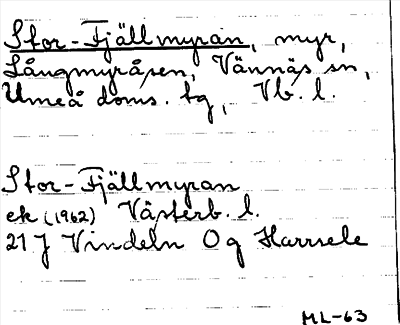 Stor-Fjällmyran, myr,
Långmyråsen, Vännäs sn,
Umeå doms. tg, Vb. l.
Stor-Fjällmyran
ek (1962) Västerb. l.
21 J Vindeln O g Harrsele
ML-63